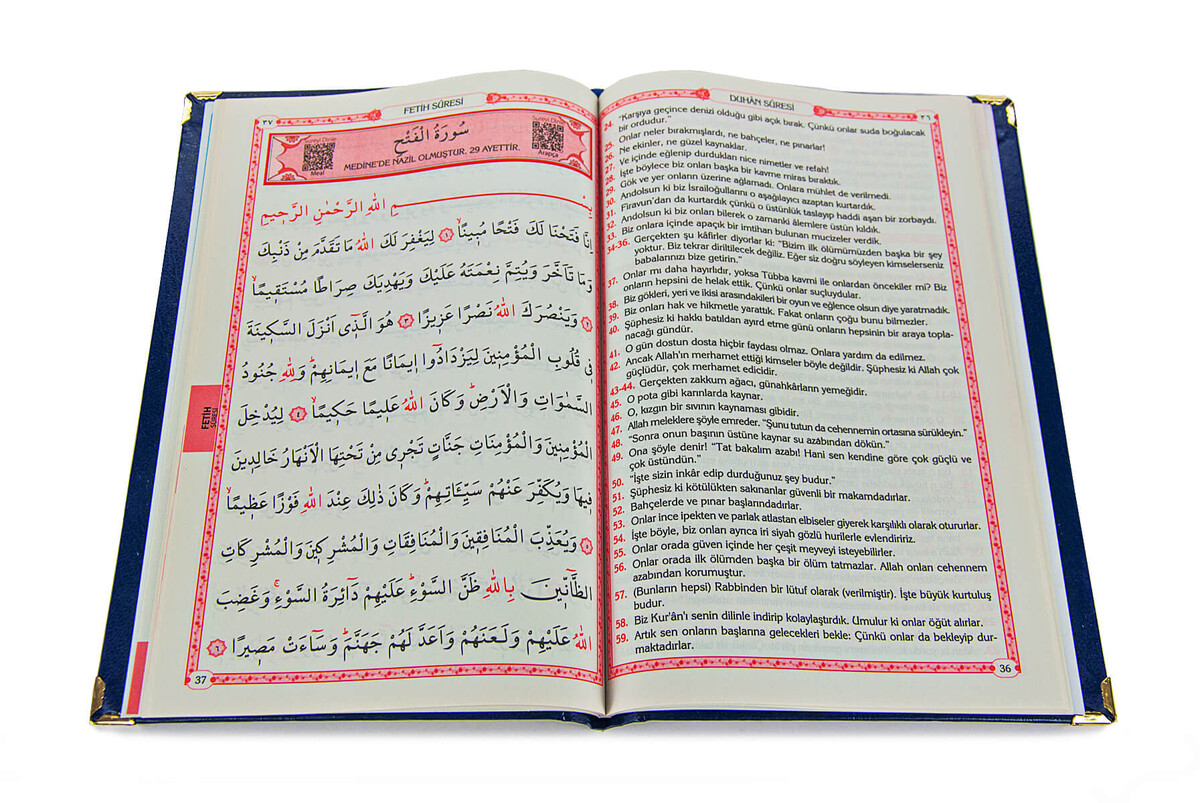 DUHÂN SÛRESİ
٣٦
24. "Karşıya geçince denizi olduğu gibi açık bırak. Çünkü onlar suda boğulacak
bir ordudur."
25. Onlar neler bırakmışlardı, ne bahçeler, ne pınarlar!
26. Ne ekinler, ne güzel kaynaklar.
27. Ve içinde eğlenip durdukları nice nimetler ve refah!
28. İşte böylece biz onları başka bir kavme miras bıraktık.
29. Gök ve yer onların üzerine ağlamadı. Onlara mühlet de verilmedi.
30. Andolsun ki biz İsrailoğullarını o aşağılayıcı azaptan kurtardık.
31. Firavun'dan da kurtardık çünkü o üstünlük taslayıp haddi aşan bir zorbaydı.
32. Andolsun ki biz onları bilerek o zamanki âlemlere üstün kıldık.
33. Biz onlara içinde apaçık bir imtihan bulunan mucizeler verdik.
34-36. Gerçekten şu kâfirler diyorlar ki: "Bizim ilk ölümümüzden başka bir şey
yoktur. Biz tekrar diriltilecek değiliz. Eğer siz doğru söyleyen kimselerseniz
babalarınızı bize getirin."
37. Onlar mı daha hayırlıdır, yoksa Tübba kavmi ile onlardan öncekiler mi? Biz
onların hepsini de helak ettik. Çünkü onlar suçluydular.
38. Biz gökleri, yeri ve ikisi arasındakileri bir oyun ve eğlence olsun diye yaratmadık.
39. Biz onları hak ve hikmetle yarattık. Fakat onların çoğu bunu bilmezler.
40. Şüphesiz ki hakkı batıldan ayırd etme günü onların hepsinin bir araya topla-
nacağı gündür.
41. O gün dostun dosta hiçbir faydası olmaz. Onlara yardım da edilmez.
42. Ancak Allah'ın merhamet ettiği kimseler böyle değildir. Şüphesiz ki Allah çok
güçlüdür, çok merhamet edicidir.
43-44. Gerçekten zakkum ağacı, günahkârların yemeğidir.
45. O pota gibi karınlarda kaynar.
46. O, kızgın bir sıvının kaynaması gibidir.
47. Allah meleklere şöyle emreder. "Şunu tutun da cehennemin ortasına sürükleyin."
48. "Sonra onun başının üstüne kaynar su azâbından dökün."
49. Ona şöyle denir! "Tat bakalım azabı! Hani sen kendine göre çok güçlü ve
çok üstündün."
50. "İşte sizin inkâr edip durduğunuz şey budur."
51. Şüphesiz ki kötülükten sakınanlar güvenli bir makamdadırlar.
52. Bahçelerde ve pınar başlarındadırlar.
53. Onlar ince ipekten ve parlak atlastan elbiseler giyerek karşılıklı olarak otururlar.
54. İşte böyle, biz onları ayrıca iri siyah gözlü hurilerle evlendiririz.
55. Onlar orada güven içinde her çeşit meyveyi isteyebilirler.
56. Onlar orada ilk ölümden başka bir ölüm tatmazlar. Allah onları cehennem
azabından korumuştur.
57. (Bunların hepsi) Rabbinden bir lütuf olarak (verilmiştir). İşte büyük kurtuluş
budur.
58. Biz Kur'ân'ı senin dilinle indirip kolaylaştırdık. Umulur ki onlar öğüt alırlar.
59. Artık sen onların başlarına gelecekleri bekle: Çünkü onlar da bekleyip dur-
maktadırlar.
36
٣٧
FETİH SÛRESİ
Sureyi Dinle
Meal
سُورَةُ الْفَتْحِ
Sureyi Dinle
Arapça
MEDİNE'DE NAZİL OLMUŞTUR. 29 AYETTİR.
بِسْمِ اللهِ الرَّحْمٰنِ الرَّحِيمِ
اِنَّا فَتَحْنَا لَكَ فَتْحًا مُبِينًاۙ ﴿١﴾ لِيَغْفِرَ لَكَ اللهُ مَا تَقَدَّمَ مِنْ ذَنْبِكَ
وَمَا تَاَخَّرَ وَيُتِمَّ نِعْمَتَهُ عَلَيْكَ وَيَهْدِيَكَ صِرَاطًا مُسْتَقِيمًاۙ
﴿٢﴾ وَيَنْصُرَكَ اللهُ نَصْرًا عَزِيزًا ﴿٣﴾ هُوَ الَّذِٓي اَنْزَلَ السَّكِينَةَ
فِي قُلُوبِ الْمُؤْمِنِينَ لِيَزْدَادُٓوا اِيمَانًا مَعَ اِيمَانِهِمْۜ وَلِلّٰهِ جُنُودُ
السَّمٰوَاتِ وَالْاَرْضِۜ وَكَانَ اللهُ عَلِيمًا حَكِيمًاۙ ﴿٤﴾ لِيُدْخِلَ
الْمُؤْمِنِينَ وَالْمُؤْمِنَاتِ جَنَّاتٍ تَجْرِي مِنْ تَحْتِهَا الْاَنْهَارُ خَالِدِينَ
فِيهَا وَيُكَفِّرَ عَنْهُمْ سَيِّـَٔاتِهِمْۜ وَكَانَ ذٰلِكَ عِنْدَ اللهِ فَوْزًا عَظِيمًاۙ
﴿٥﴾ وَيُعَذِّبَ الْمُنَافِقِينَ وَالْمُنَافِقَاتِ وَالْمُشْرِكِينَ وَالْمُشْرِكَاتِ
الظَّٓانِّينَ بِاللهِ ظَنَّ السَّوْءِۜ عَلَيْهِمْ دَٓائِرَةُ السَّوْءِۚ وَغَضِبَ
اللهُ عَلَيْهِمْ وَلَعَنَهُمْ وَاَعَدَّ لَهُمْ جَهَنَّمَۜ وَسَٓاءَتْ مَصِيرًا ﴿٦﴾
FETİH
SÛRESİ
37